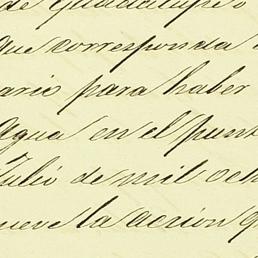 de Guadalupe
que corresponda
ario para haber
agua en el punt
Julio de mil och
nueve la acción q